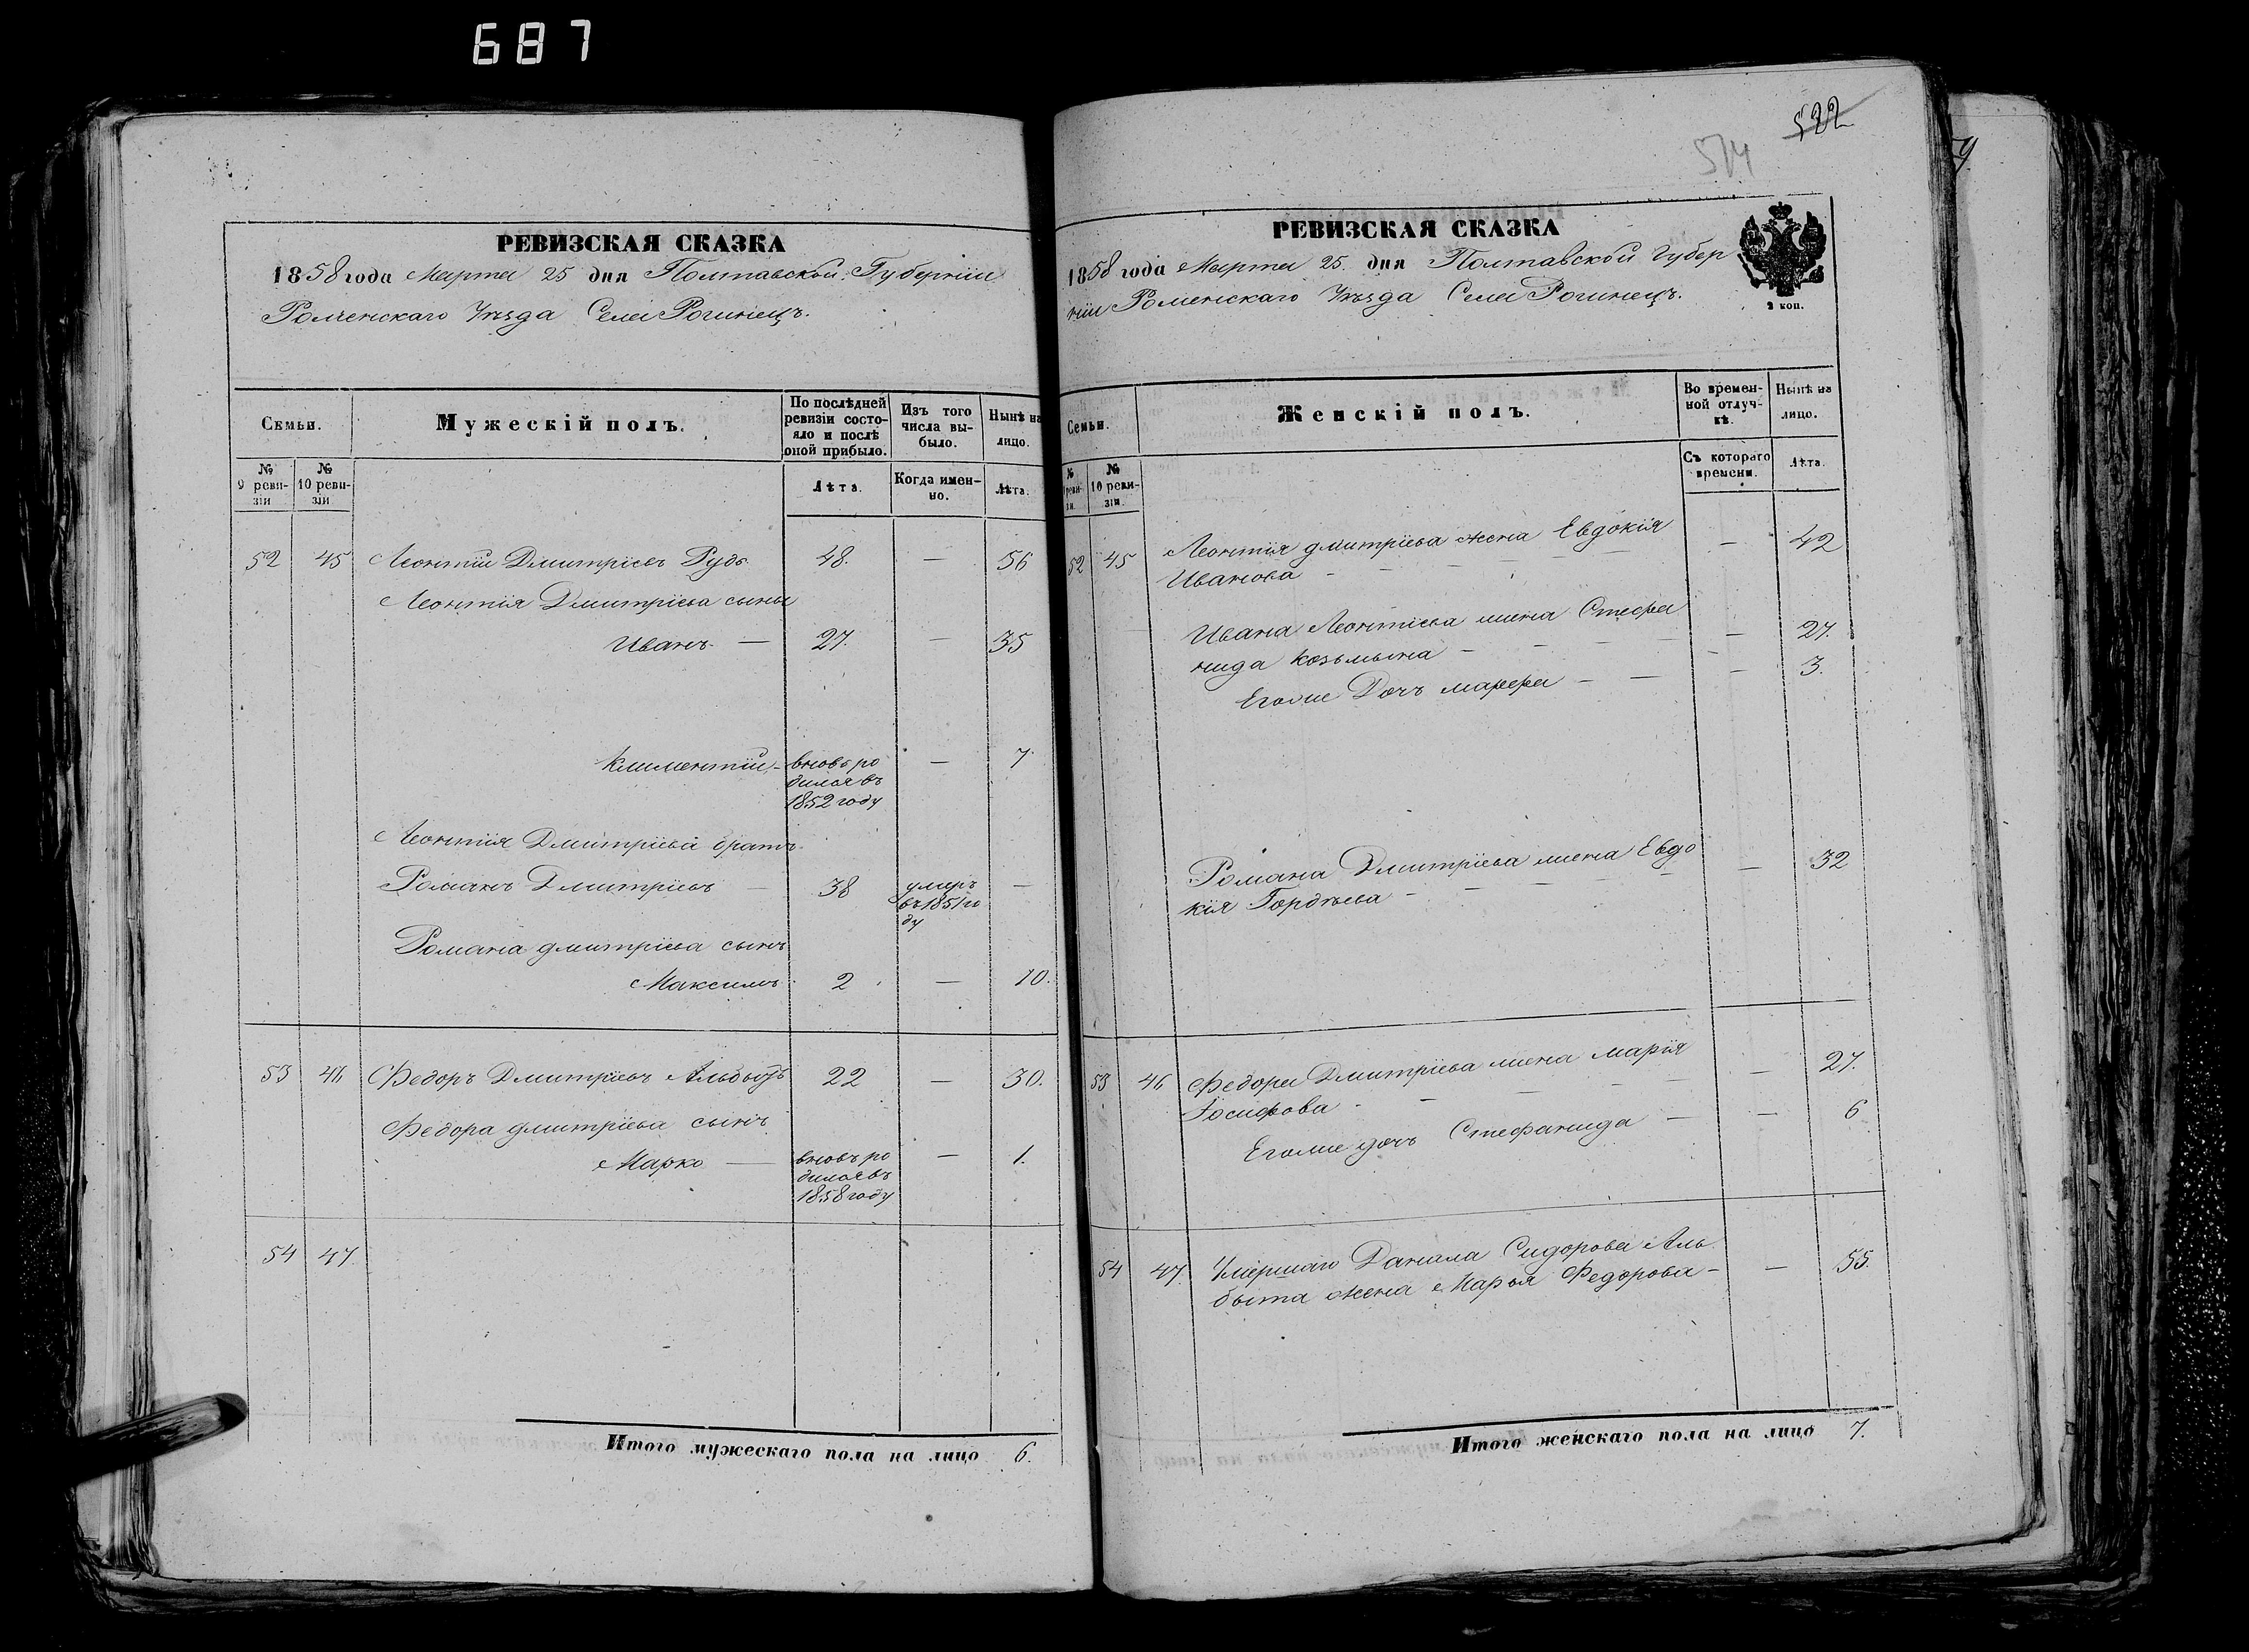 687
РЕВИЗСКАЯ СКАЗКА
1858 года Марта 25 дня Полтавской Губерніи
Роменскаго Уѣзда Села Рогинецъ.
Семьи.
Мужескій полъ.
По послѣдней ревизіи состояло и послѣ оной прибыло.
Изъ того числа выбыло.
Нынѣ на лицо.
№ 9 ревизіи
№ 10 ревизіи
Лѣта.
Когда именно.
Лѣта.
52 45 Леонтій Дмитріевъ Рудь 48. — 56
Леонтія Дмитріева сыны
Иванъ — 27. — 35
Климентій — вновь ро — 7
дился въ
1852 году
Леонтія Дмитріева братъ
Романъ Дмитріевъ — 38 умеръ —
въ 1851 го
ду
Романа Дмитріева сынъ
Максимъ 2 — 10.
53 46 Федоръ Дмитріевъ 22 — 30.
Федора Дмитріева сынъ
Марко — вновь ро — 1.
дился въ
1858 году
54 47
Итого мужескаго пола на лицо 6.
522
574
РЕВИЗСКАЯ СКАЗКА
1858 года Марта 25. дня Полтавской Губер
ніи Роменскаго Уѣзда Села Рогинецъ.
2 коп.
Семьи.
Женскій полъ.
Во временной отлучкѣ.
Нынѣ на лицо.
№ 9 ревизіи.
№ 10 ревизіи.
Съ котораго времени.
Лѣта.
52 45 Леонтія Дмитріева жена Евдокія — 42
Иванова
Ивана Леонтіева жена Стефа — 27.
нида Козьмина
Егоже Дочь Марфа — 3.
Романа Дмитріева жена Евдо — 32
кія Гордѣева
53 46 Федора Дмитріева жена Марія — 27.
Іосифова
Егоже дочь Стефанида — 6
54 47. Умершаго Данила Сидорова Аль — 55.
быта жена Марья Федорова
Итого женскаго пола на лицо 7.